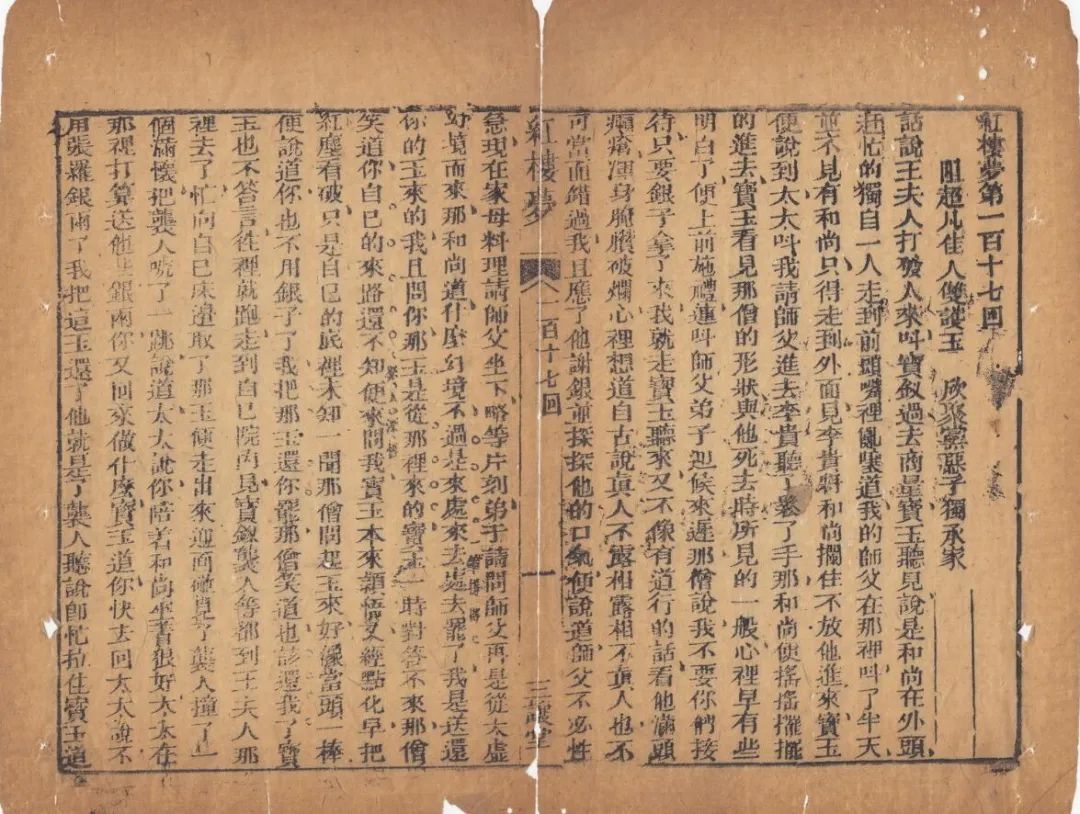 紅樓夢第一百十七回
阻超凡佳人雙護玉　欣聚黨惡子獨承家
話說王夫人打發人來叫寶釵過去商量寶玉聽見說是和尚在外頭
赶忙的獨自一人走到前頭嘴裡亂嚷道我的師父在那裡叫了半天
並不見有和尚只得走到外面見李貴將和尚攔住不放他進來寶玉
便說到太太叫我請師父進去李貴聽了鬆了手那和尚便搖搖擺擺
的進去寶玉看見那僧的形狀與他死去時所見的一般心裡早有些
明白了便上前施禮連叫師父弟子迎候來遲那僧說我不要你們接
待只要銀子拿了來我就走寶玉聽來又不像有道行的話看他滿頭
癩瘡渾身腌臢破爛心裡想道自古說真人不露相露相不真人也不
可當面錯過我且應了他謝銀並探探他的口氣便說道師父不必性
紅樓夢　一百十七回　一　三讓堂
急現在家母料理請師父坐下略等片刻弟子請問師父再是從太虛
幻境而來那和尚道什麼幻境不過是來處來去處去罷了我是送還
你的玉來的我且問你那玉是從那裡來的寶玉一時對答不來那僧
笑道你自已的來路還不知便來問我寶玉本來穎悟又經點化早把
紅塵看破只是自已的底裡未知一聞那僧問起玉來好像當頭一棒
便說道你也不用銀子了我把那玉還你罷那僧笑道也該還我了寶
玉也不答言往裡就跑走到自已院內見寶釵襲人等都到王夫人那
裡去了忙向自已床邊取了那玉便走出來迎面碰見了襲人撞了一
個滿懷把襲人唬了一跳說道太太說你陪着和尚坐着狠好太太在
那裡打算送他些銀兩你又回來做什麼寶玉道你快去回太太說不
用張羅銀兩了我把這玉還了他就是了襲人聽說卽忙拉住寶玉道